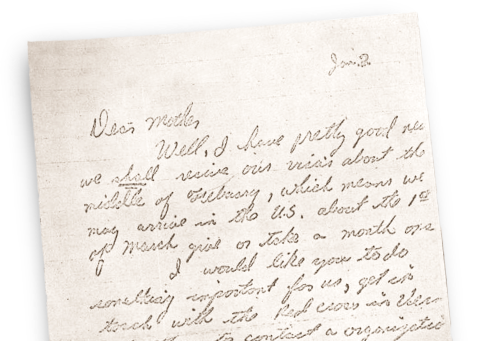 Jan. 2
Dear Mother,
Well, I have pretty good
we shall receive our visas about the
middle of February, which means we
may arrive in the U.S. about the 1st
of March give or take a month one
I would like you to do
something important for us, get in
touch with the Red Cross in
to contact a